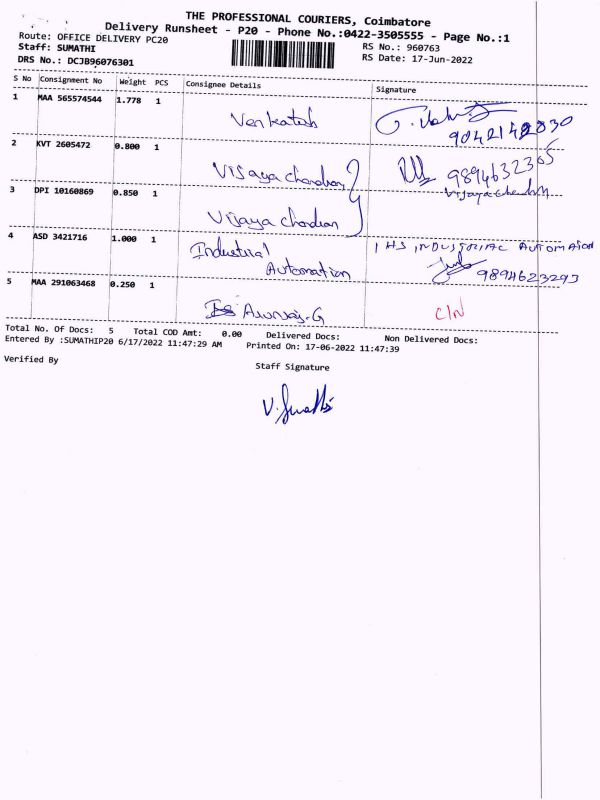 THE PROFESSIONAL COURIERS, Coimbatore
Delivery Runsheet - P20 - Phone No.:0422-3505555 - Page No.:1
Route: OFFICE DELIVERY PC20
RS No.: 960763
Staff: SUMATHI
RS Date: 17-Jun-2022
DRS No.: DCJB96076301
S No Consignment No Weight PCS Consignee Details Signature
1 MAA 565574544 1.778 1 Venkatesh
9042142830
2 KVT 2605472 0.800 1 Vijaya chandran 9894632365
Vijayachandran
3 DPI 10160869 0.850 1 Vijaya chandran
4 ASD 3421716 1.000 1 Industrial Automation IHS INDUSTRIAL AUTOMATION
9894623293
5 MAA 291063468 0.250 1 Arunraj.G C/N
Total No. Of Docs: 5 Total COD Amt: 0.00 Delivered Docs: Non Delivered Docs:
Entered By :SUMATHIP20 6/17/2022 11:47:29 AM Printed On: 17-06-2022 11:47:39
Verified By
Staff Signature